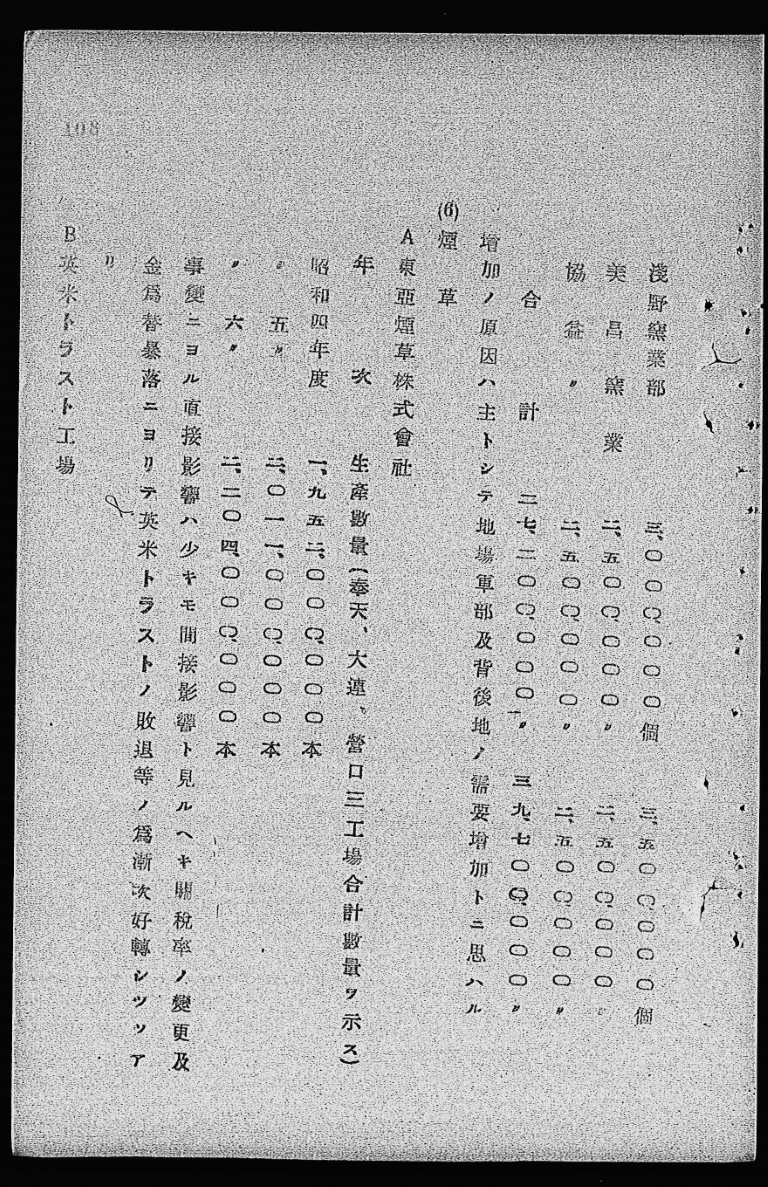 淺野窯業部　三、〇〇〇、〇〇〇個　三、五〇〇、〇〇〇個
美昌窯業　二、五〇〇、〇〇〇〃　二、五〇〇、〇〇〇〃
協益〃　二、五〇〇、〇〇〇〃　二、五〇〇、〇〇〇〃
合計　二七、二〇〇、〇〇〇〃　三九、七〇〇、〇〇〇〃
增加ノ原因ハ主トシテ地場軍部及背後地ノ需要增加トニ思ハル
(6)煙草
A東亞煙草株式會社
年次　生產數量(奉天、大連、營口三工場合計數量ヲ示ス)
昭和四年度　一、九五二、〇〇〇、〇〇〇本
〃五〃　二、〇一一、〇〇〇、〇〇〇本
〃六〃　二、二〇四、〇〇〇、〇〇〇本
事變ニヨル直接影響ハ少キモ間接影響ト見ルヘキ關稅率ノ變更及
金爲替暴落ニヨリテ英米トラストノ敗退等ノ爲漸次好轉シツツア
リ
B英米トラスト工場
108